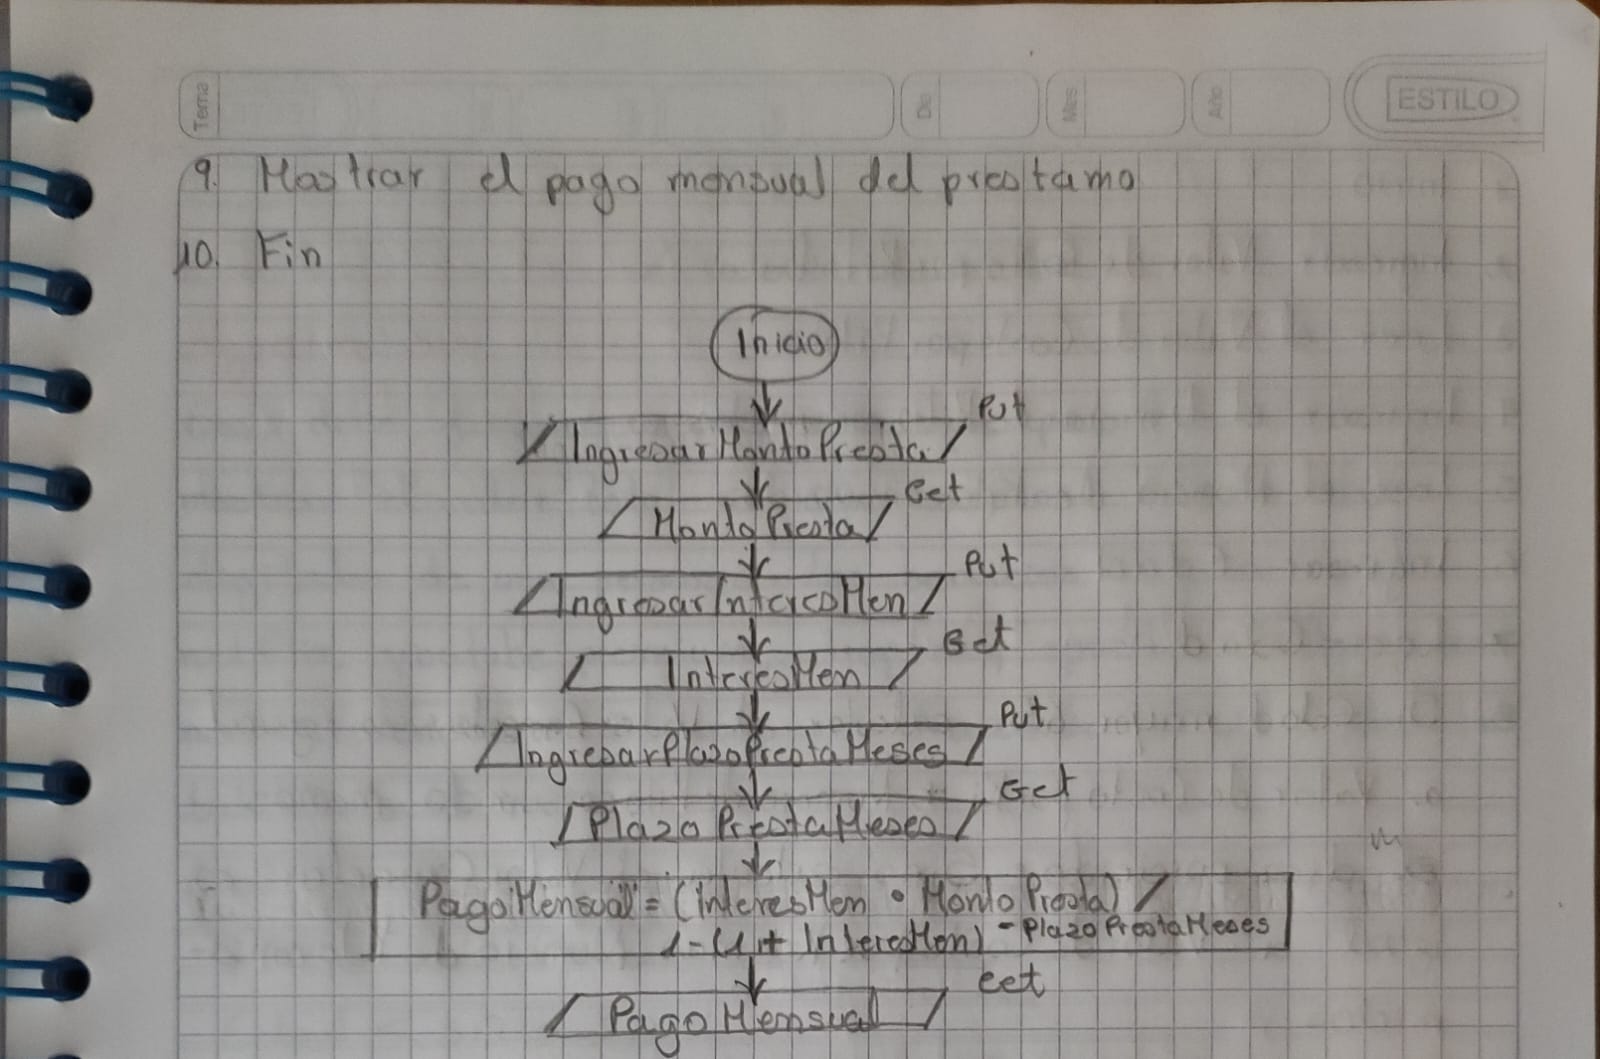 Tema
Dia
Mes
Año
ESTILO
9. Mostrar el pago mensual del prestamo
10. Fin
Inicio
Put
IngresarMontoPresta
Get
MontoPresta
Put
IngresarInteresMen
Get
InteresMen
Put
IngresarPlazoPrestaMeses
Get
PlazoPrestaMeses
PagoMensual = (InteresMen • MontoPresta) /
1-(1+ InteresMen) -PlazoPrestaMeses
Get
PagoMensual